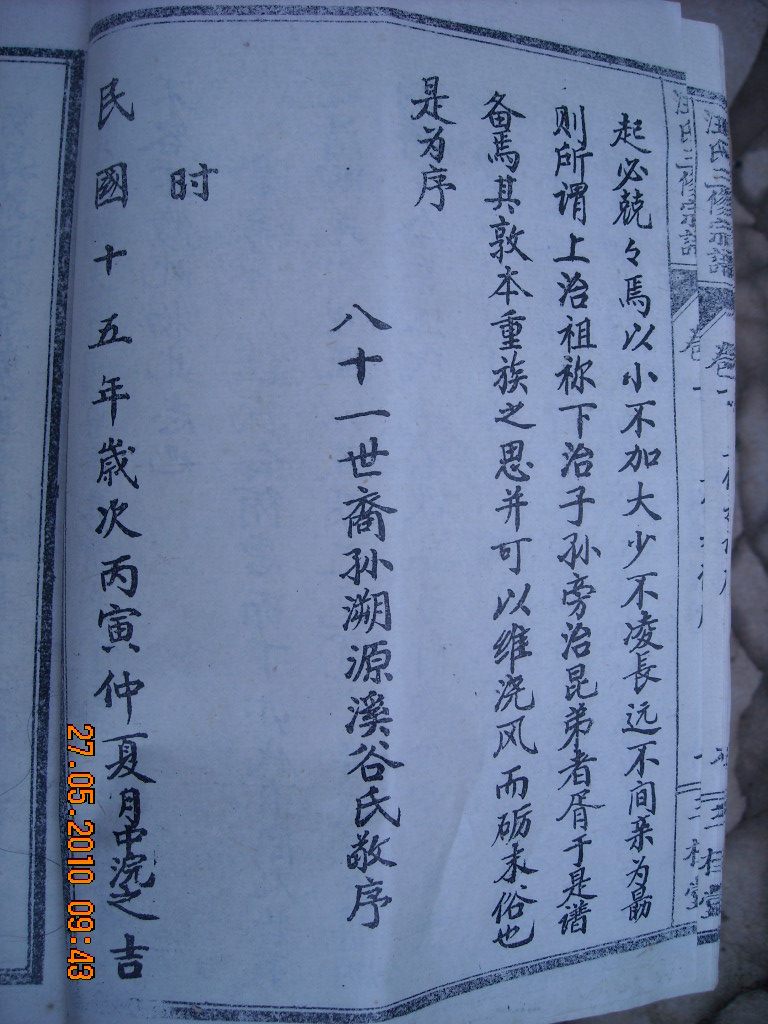 汪氏三修宗譜
卷一
三桂堂
起必兢々焉以小不加大少不凌長远不间亲为勗
则所谓上治祖祢下治子孙旁治昆弟者胥于是谱
备焉其敦本重族之思并可以维浇风而砺末俗也
是为序
八十一世裔孙溯源溪谷氏敬序
时
民國十五年歲次丙寅仲夏月中浣之吉
27.05.2010 09:43